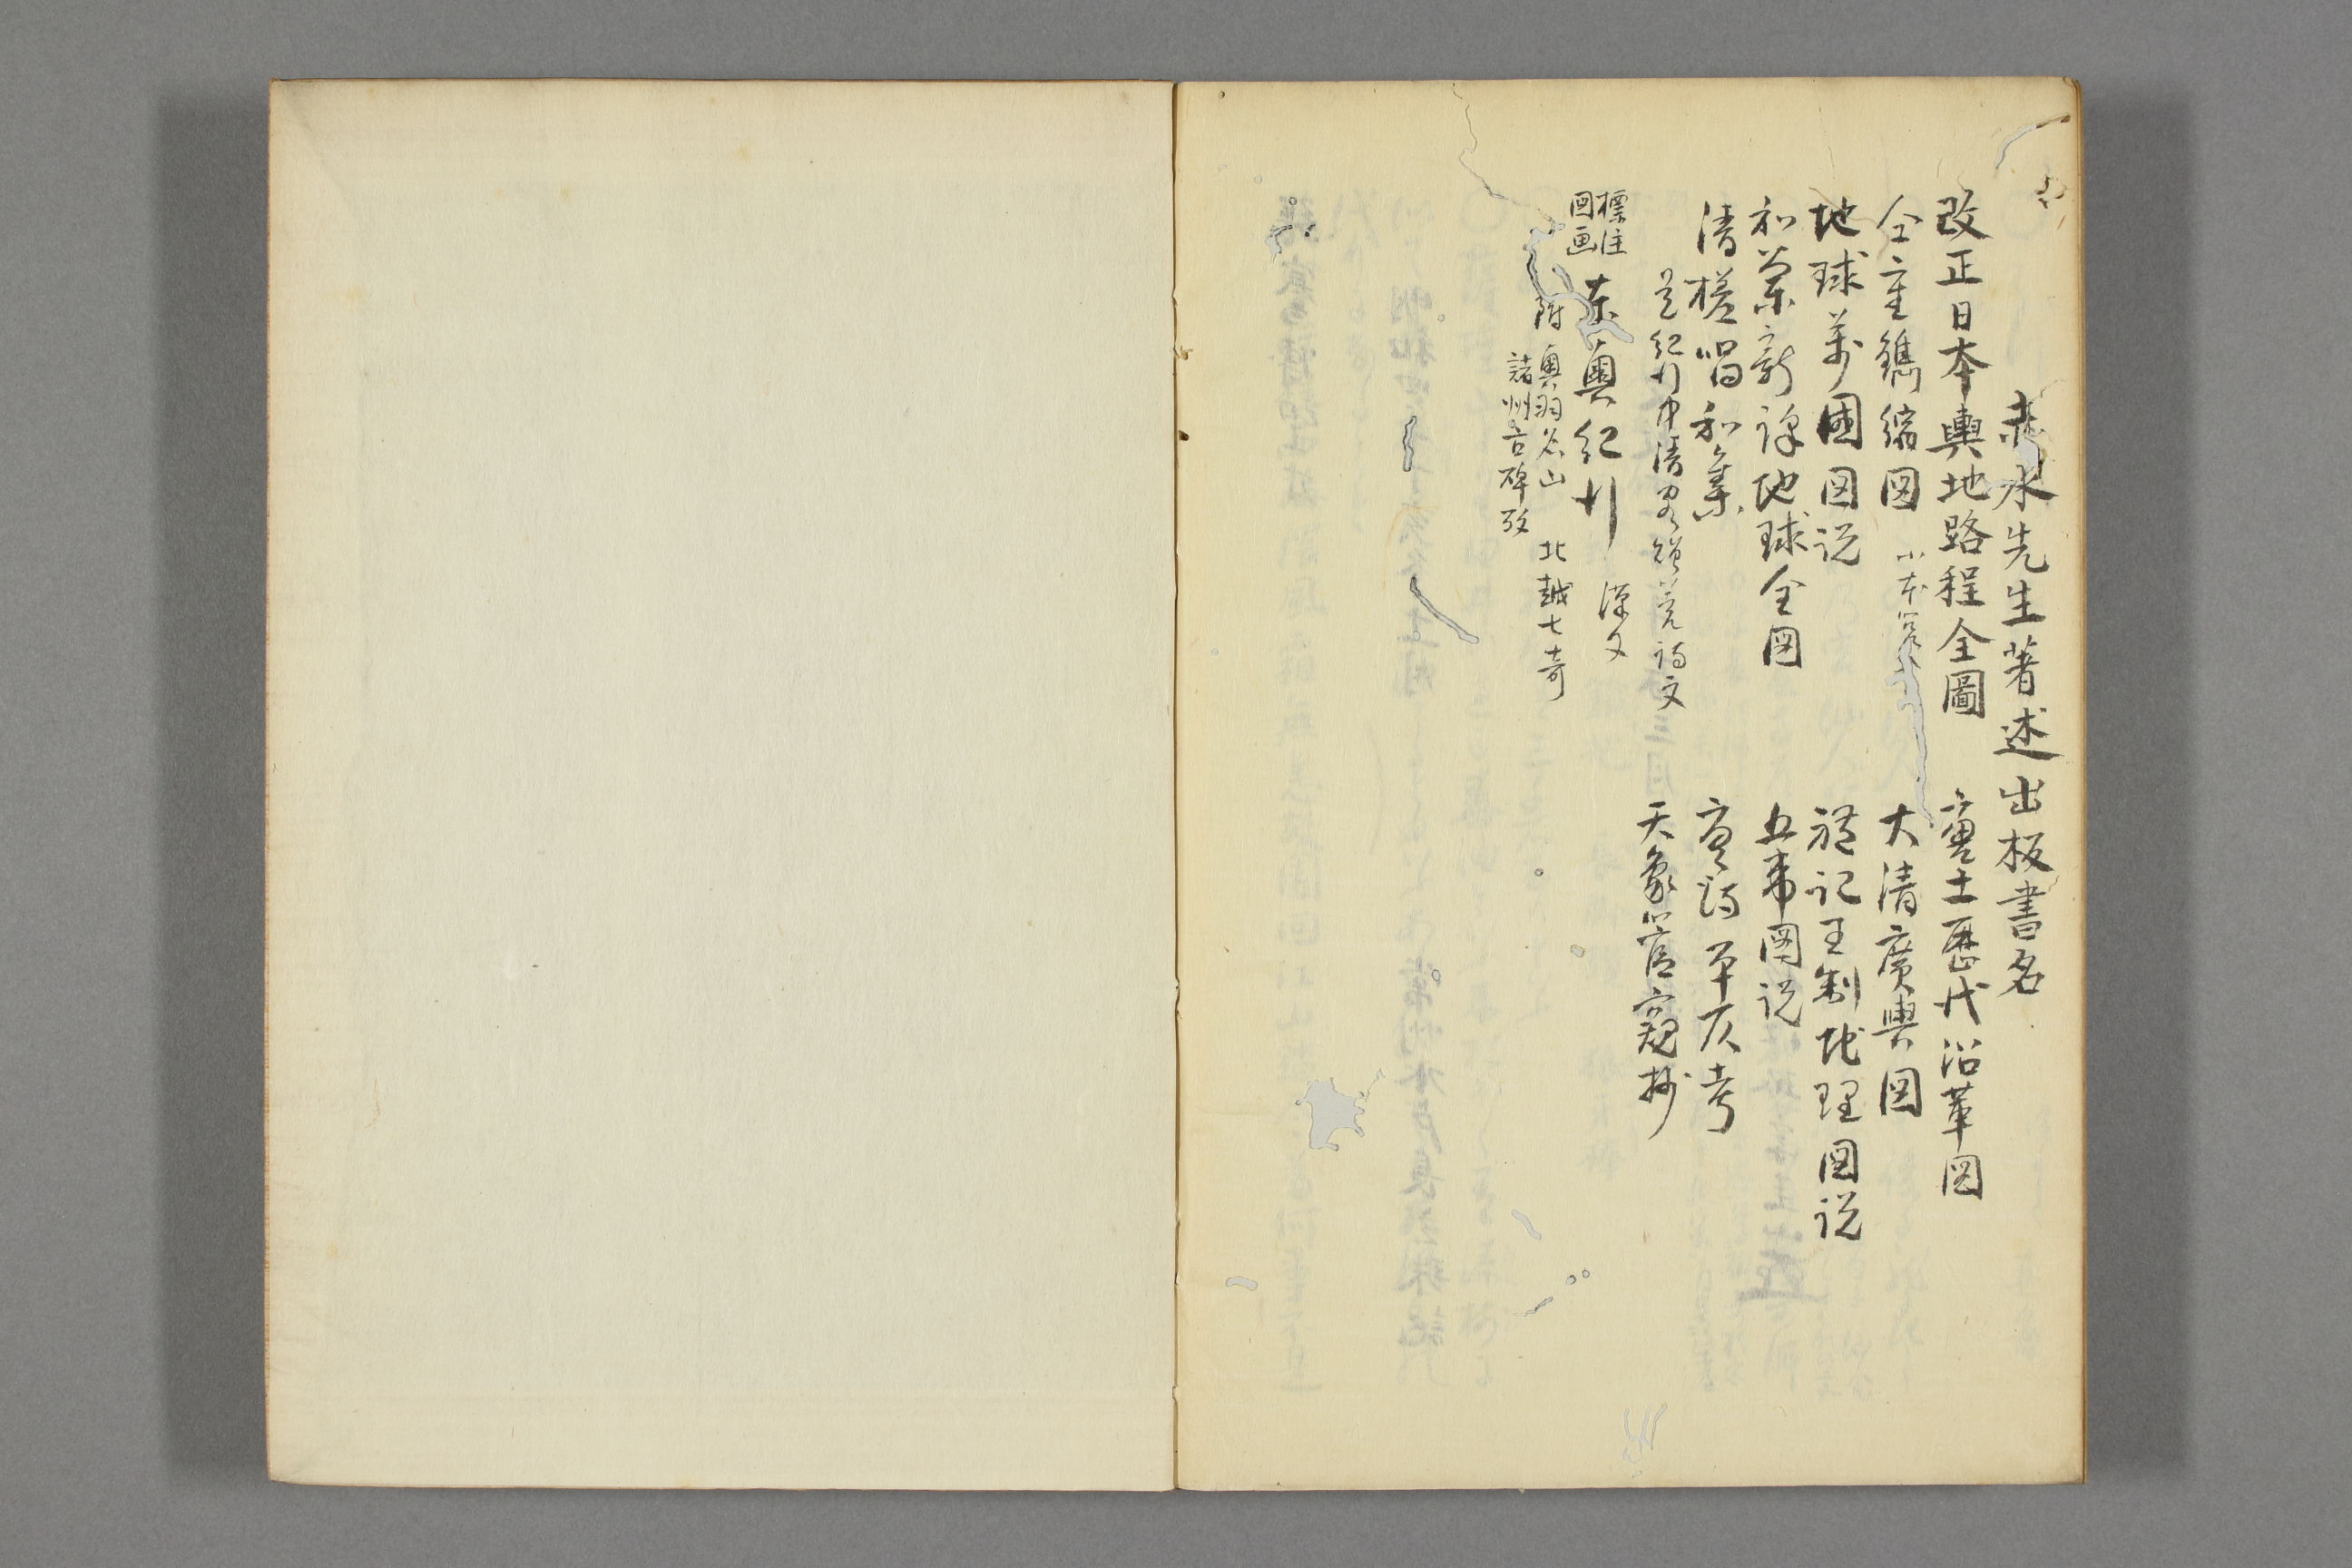 赤水先生著述出板書名
改正日本輿地路程全圖
唐土歴代沿革図
仝重鐫縮図 小本
大清廣輿図
地球萬國図説
禮記王制地理図説
和蘭新譯地球全図
五帯図説
清槎唱和集
唐詩平仄考
是紀行中清客贈答詩文
天象管窺抄
標注
図画
東奥紀行 漢文
附 奥羽名山 北越七奇
諸州古碑攷